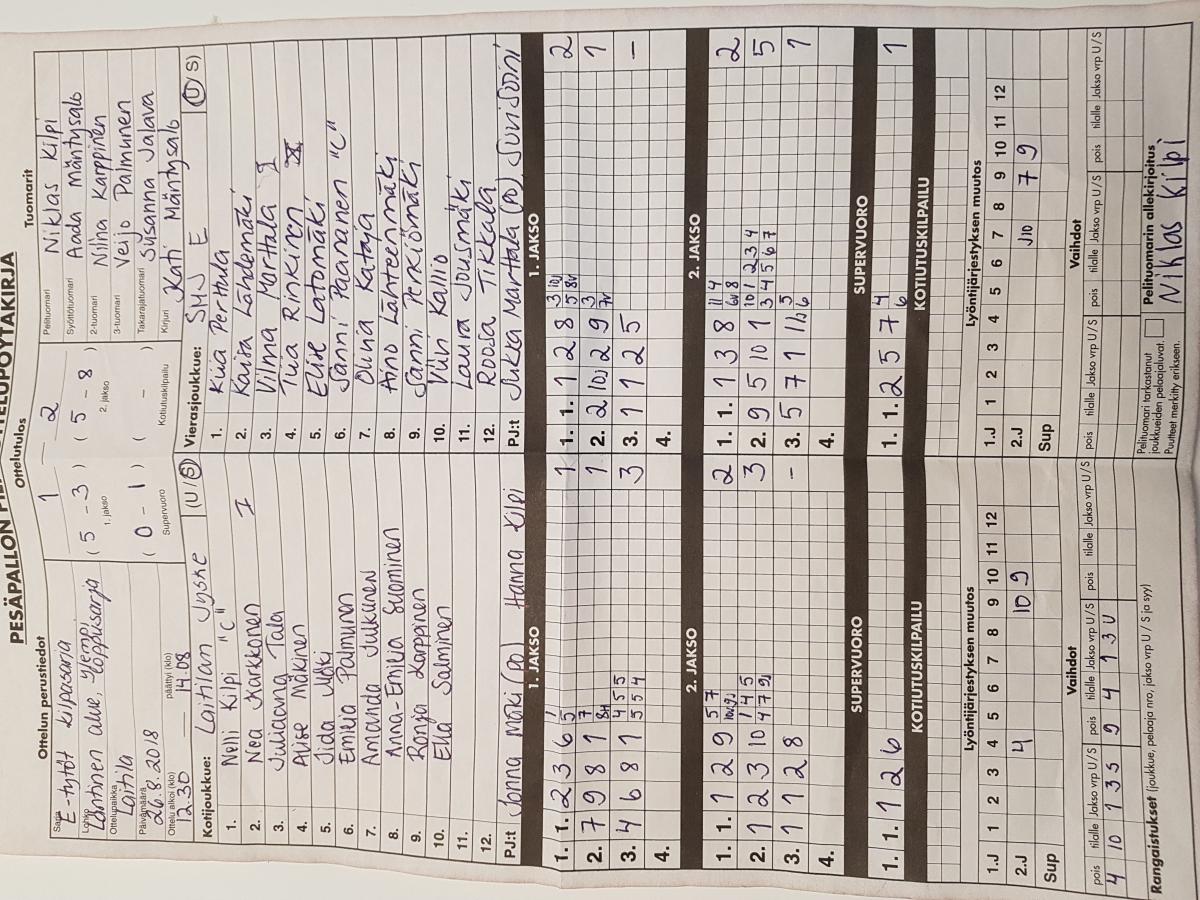 PESÄPALLON
PÖYTÄKIRJA
Ottelun perustiedot
Sarja E-tytöt kilpasarja
Lohko Läntinen alue, ylempi loppusarja
Ottelupaikka Laitila
Päivämäärä 26.8.2018
Ottelu alkoi (klo) 12.30 päättyi (klo) 14.08
Ottelutulos
1 - 2
( 5 - 3 ) ( 5 - 8 )
1. jakso 2. jakso
( 0 - 1 ) ( - )
Supervuoro Kotiutuskilpailu
Tuomarit
Pelituomari Niklas Kilpi
Syöttötuomari Aada Mäntysalo
2-tuomari Niina Karppinen
3-tuomari Veijo Palmunen
Takarajatuomari Susanna Jalava
Kirjuri Kati Mäntysalo
Kotijoukkue: Laitilan Jyske (U/S)
1. Nelli Kilpi "C"
2. Nea Karkkonen I
3. Julianna Tala
4. Alise Mäkinen
5. Iida Mäki
6. Emilia Palmunen
7. Amanda Julkunen
8. Anna-Emilia Suominen
9. Ronja Karppinen
10. Ella Salminen
11.
12.
PJ:t Jonna Mäki (PJ) Hanna Kilpi
Vierasjoukkue: SMJ E (U/S)
1. Kiia Perttula
2. Kaisa Lähdemäki
3. Vilma Marttala I
4. Tiia Rinkinen
5. Elise Latomäki
6. Sanni Paananen "C"
7. Olivia Kataja
8. Aino Lähteenmäki
9. Sanni Perkiömäki
10. Viivi Kallio
11. Laura Jousmäki
12. Roosa Tikkala
PJ:t Jukka Marttala (PJ) Suvi Soini
1. JAKSO
1. 1. 2 3 6 5 1 1
2. 7 9 8 1 7 1
3. 4 6 8 1 455 554 3
4.
1. JAKSO
1. 1. 1 2 8 3 5 2
2. 2 10J 2 9 3 1
3. 1 1 2 5 -
4.
2. JAKSO
1. 1. 1 2 9 5 7 2
2. 1 2 3 10 145 479 3
3. 1 1 2 8 -
4.
2. JAKSO
1. 1. 1 3 8 11 4 2
2. 9 5 10 1 101234 34567 5
3. 5 7 1 5 6 1
4.
SUPERVUORO
1. 1. 1 2 6
SUPERVUORO
1. 1. 2 5 7 4 6 1
KOTIUTUSKILPAILU
KOTIUTUSKILPAILU
Lyöntijärjestyksen muutos
1.J 1 2 3 4 5 6 7 8 9 10 11 12
2.J 4 10 9
Sup
Lyöntijärjestyksen muutos
1.J 1 2 3 4 5 6 7 8 9 10 11 12
2.J J10 7 9
Sup
Vaihdot
pois tilalle Jakso vrp U/S pois tilalle Jakso vrp U/S pois tilalle Jakso vrp U/S
4 10 1 3 S 9 4 1 3 U
Vaihdot
pois tilalle Jakso vrp U/S pois tilalle Jakso vrp U/S pois tilalle Jakso vrp U/S
Rangaistukset (joukkue, pelaaja nro, jakso vrp U/S ja syy)
Pelituomari tarkastanut
joukkueiden pelaajaluvat.
Puutteet merkitty erikseen.
Pelituomarin allekirjoitus
Niklas Kilpi